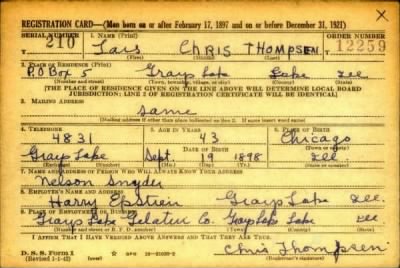 REGISTRATION CARD—(Men born on or after February 17, 1897 and on or before December 31, 1921)
SERIAL NUMBER 1. NAME (Print) ORDER NUMBER
T 210 Lars CHRIS THOMPSEN 12259
(First) (Middle) (Last)
2. PLACE OF RESIDENCE (Print)
P.O Box 5 Grays Lake Lake Ill
(Number and street) (Town, township, village, or city) (County) (State)
[THE PLACE OF RESIDENCE GIVEN ON THE LINE ABOVE WILL DETERMINE LOCAL BOARD
JURISDICTION; LINE 2 OF REGISTRATION CERTIFICATE WILL BE IDENTICAL]
3. MAILING ADDRESS
Same
[Mailing address if other than place indicated on line 2. If same insert word same]
4. TELEPHONE 5. AGE IN YEARS 6. PLACE OF BIRTH
4831 43 Chicago
DATE OF BIRTH
Grays Lake Sept. 19 1898 Ill.
7. NAME AND ADDRESS OF PERSON WHO WILL ALWAYS KNOW YOUR ADDRESS
Nelson Snyder
8. EMPLOYER'S NAME AND ADDRESS
Harry Epstein Grays Lake Ill.
9. PLACE OF EMPLOYMENT OR BUSINESS
Grays Lake Gelatin Co. Grays Lake Ill
I AFFIRM THAT I HAVE VERIFIED ABOVE ANSWERS AND THAT THEY ARE TRUE.
D. S. S. Form 1
(Revised 1-1-42)
Chris Thompsen
(Registrant's signature)